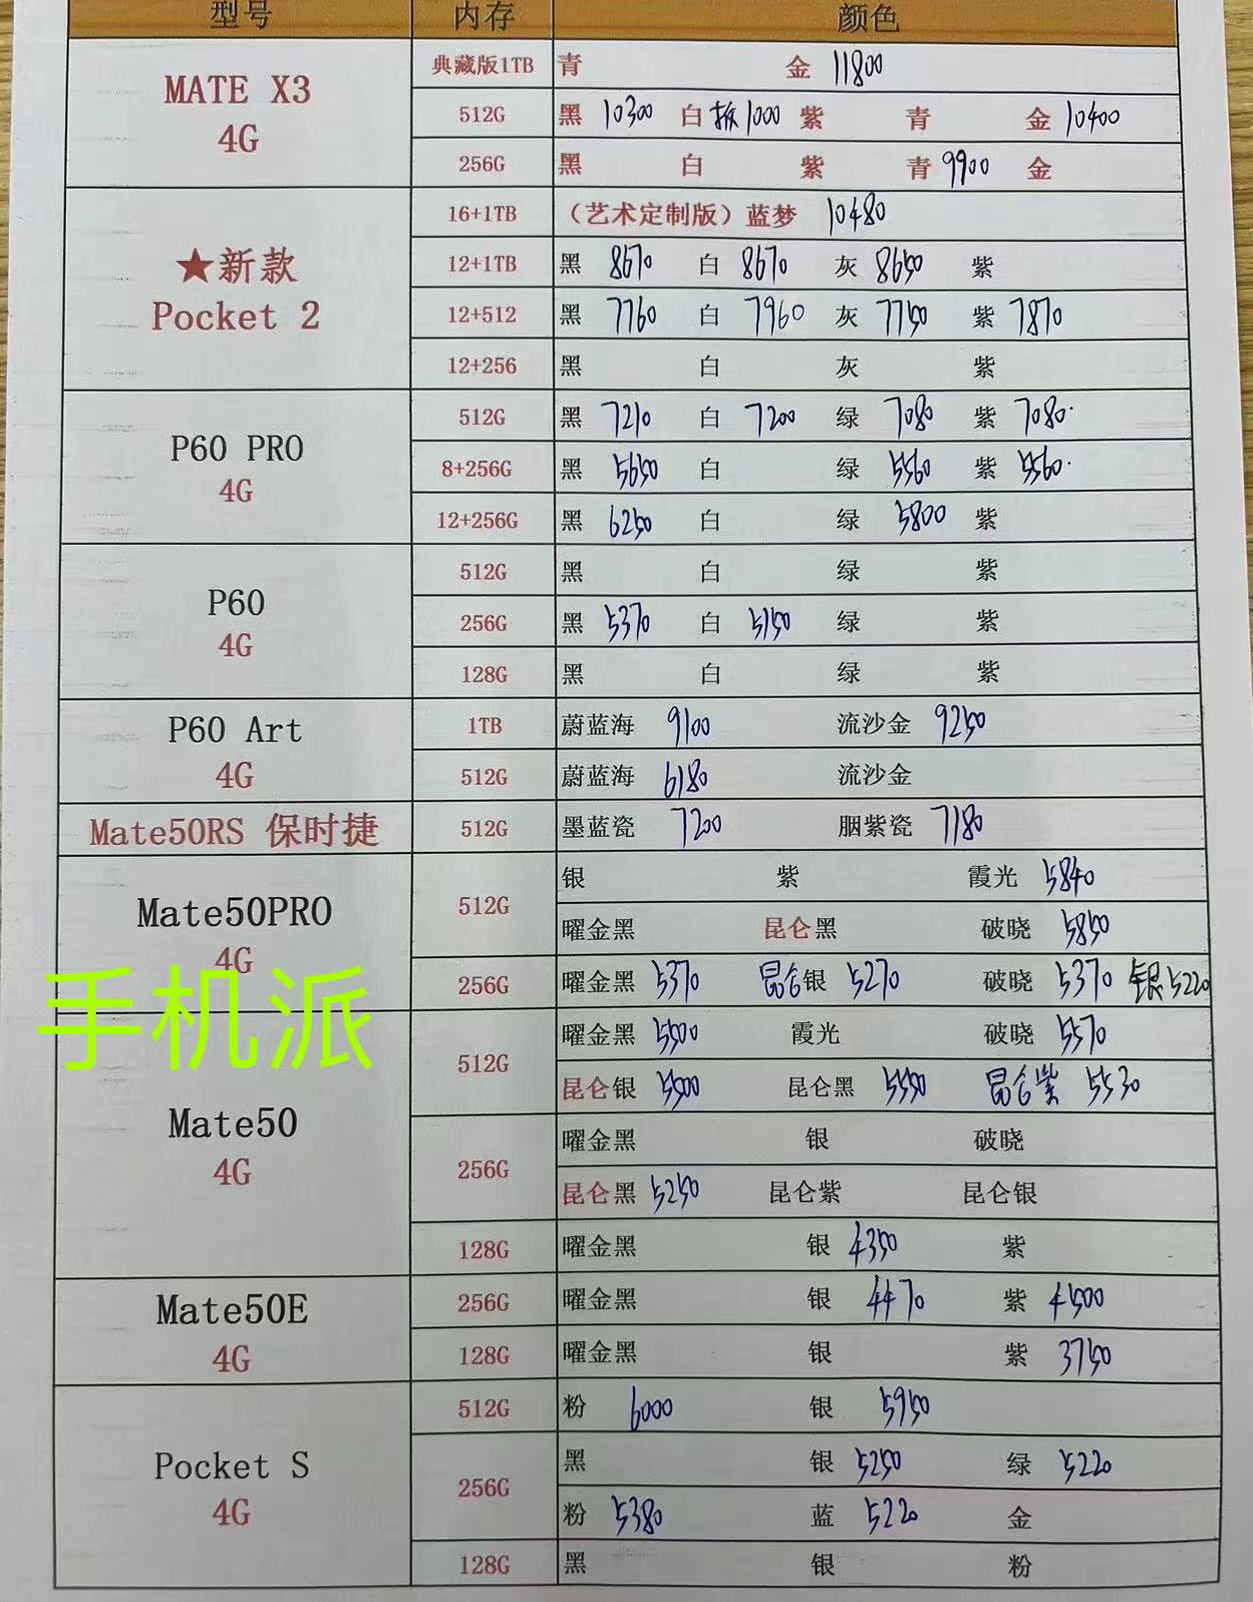 型号 内存 颜色
MATE X3
4G
典藏版1TB 青 金 11800
512G 黑 10300 白 拆1000 紫 青 金 10400
256G 黑 白 紫 青 9900 金
★新款
Pocket 2
16+1TB （艺术定制版）蓝梦 10480
12+1TB 黑 8670 白 8670 灰 8650 紫
12+512 黑 7760 白 7960 灰 7750 紫 7870
12+256 黑 白 灰 紫
P60 PRO
4G
512G 黑 7210 白 7200 绿 7080 紫 7080
8+256G 黑 5650 白 绿 5560 紫 5560
12+256G 黑 6250 白 绿 5800 紫
P60
4G
512G 黑 白 绿 紫
256G 黑 5370 白 5150 绿 紫
128G 黑 白 绿 紫
P60 Art
4G
1TB 蔚蓝海 9100 流沙金 9250
512G 蔚蓝海 6180 流沙金
Mate50RS 保时捷 512G 墨蓝瓷 7200 胭紫瓷 7180
Mate50PRO
4G
512G 银 紫 霞光 5840
曜金黑 昆仑黑 破晓 5850
256G 曜金黑 5370 昆仑银 5270 破晓 5370 银5220
手机派
Mate50
4G
512G 曜金黑 5500 霞光 破晓 5570
昆仑银 5500 昆仑黑 5550 昆仑紫 5530
256G 曜金黑 银 破晓
昆仑黑 5250 昆仑紫 昆仑银
128G 曜金黑 银 4350 紫
Mate50E
4G
256G 曜金黑 银 4470 紫 4500
128G 曜金黑 银 紫 3750
Pocket S
4G
512G 粉 6000 银 5950
256G 黑 银 5250 绿 5220
粉 5380 蓝 5220 金
128G 黑 银 粉